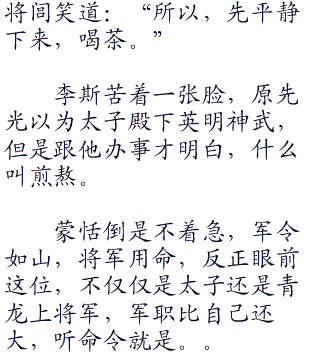 将闾笑道：“所以，先平静
下来，喝茶。”
李斯苦着一张脸，原先
光以为太子殿下英明神武，
但是跟他办事才明白，什么
叫煎熬。
蒙恬倒是不着急，军令
如山，将军用命，反正眼前
这位，不仅仅是太子还是青
龙上将军，军职比自己还
大，听命令就是。。